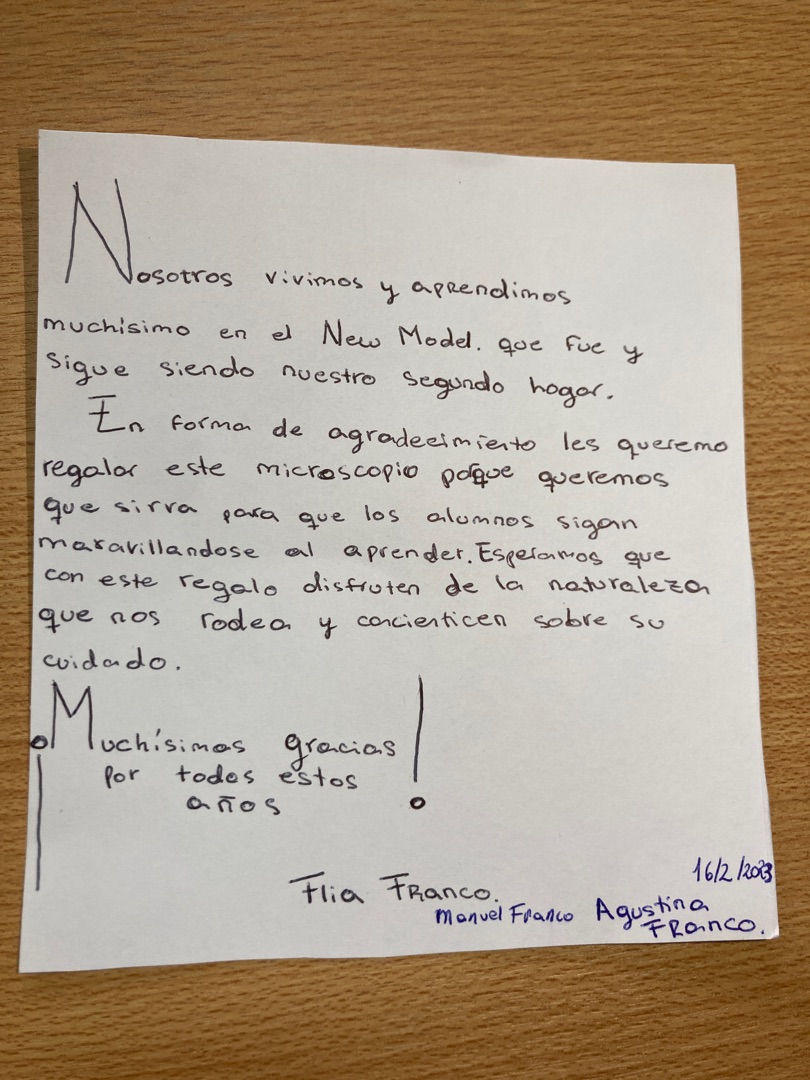 Nosotros vivimos y aprendimos
muchísimo en el New Model. que fue y
sigue siendo nuestro segundo hogar.
En forma de agradecimiento les queremo
regalar este microscopio porque queremos
que sirva para que los alumnos sigan
maravillandose al aprender. Esperamos que
con este regalo disfruten de la naturaleza
que nos rodea y concienticen sobre su
cuidado.
¡Muchísimas gracias
por todos estos
años!
16/2/2023
Flia Franco.
Manuel Franco Agustina
Franco.